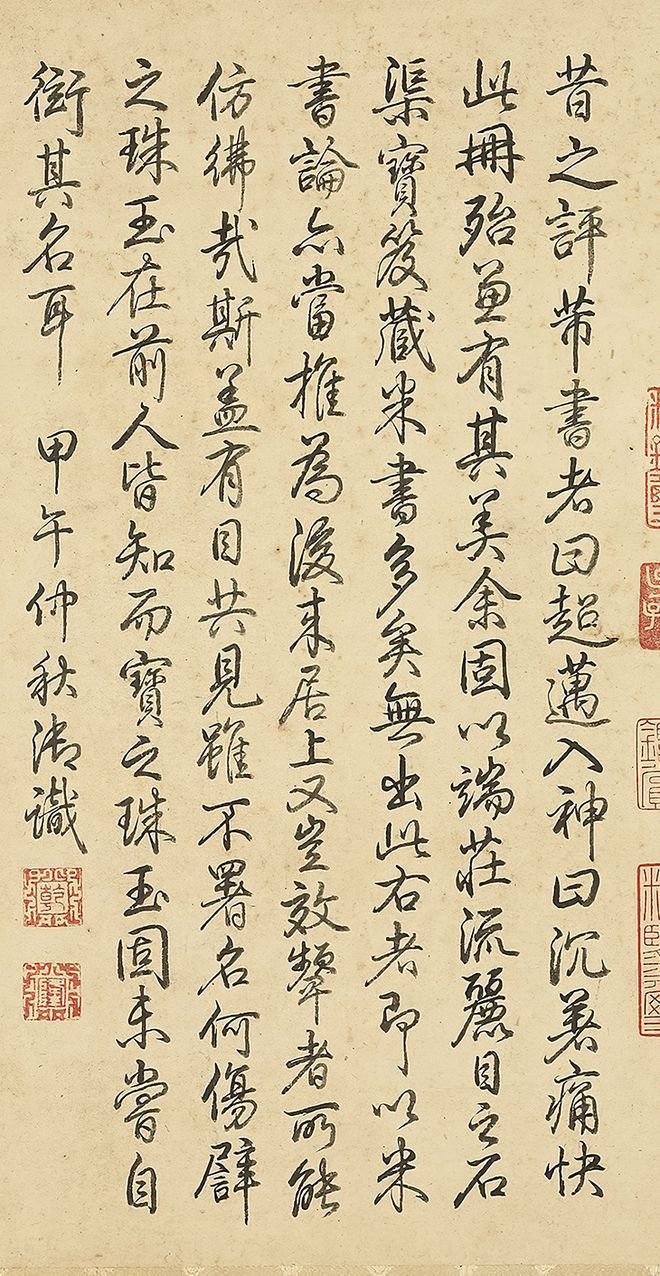 昔之評芾書者曰超邁入神曰沉著痛快
此冊殆兼有其美余固以端莊流麗目之石
渠寶笈藏米書多矣無出此右者即以米
書論亦當推為後來居上又豈效顰者所能
仿彿哉斯蓋有目共見雖不署名何傷譬
之珠玉在前人皆知而寶之珠玉固未嘗自
衒其名耳 甲午仲秋御識